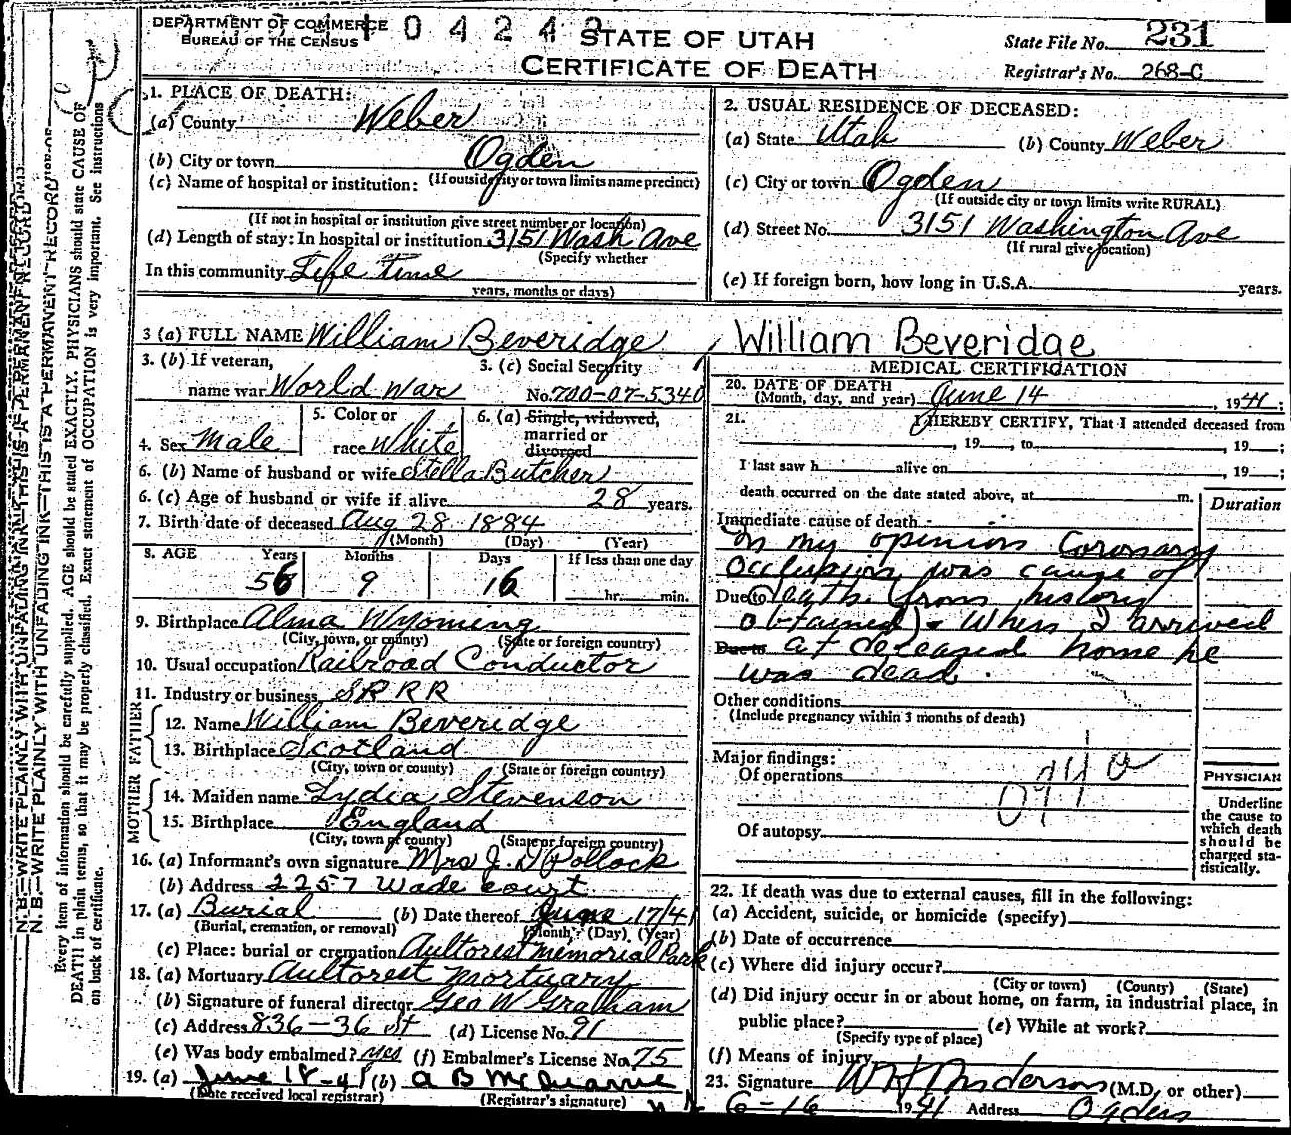 DEPARTMENT OF COMMERCE
BUREAU OF THE CENSUS
0 4 2 4 2
STATE OF UTAH
CERTIFICATE OF DEATH
State File No. 231
Registrar's No. 268-C
N. B.—WRITE PLAINLY WITH UNFADING INK—THIS IS A PERMANENT RECORD
Every item of information should be carefully supplied. AGE should be stated EXACTLY. PHYSICIANS should state CAUSE OF
DEATH in plain terms, so that it may be properly classified. Exact statement of OCCUPATION is very important. See instructions
on back of certificate.
1. PLACE OF DEATH:
(a) County Weber
(b) City or town Ogden
(If outside city or town limits name precinct)
(c) Name of hospital or institution:
(If not in hospital or institution give street number or location)
(d) Length of stay: In hospital or institution 3151 Wash Ave
(Specify whether
In this community Life Time
years, months or days)
2. USUAL RESIDENCE OF DECEASED:
(a) State Utah (b) County Weber
(c) City or town Ogden
(If outside city or town limits write RURAL)
(d) Street No. 3151 Washington Ave
(If rural give location)
(e) If foreign born, how long in U.S.A. years.
3 (a) FULL NAME William Beveridge
William Beveridge
3. (b) If veteran, name war World War
3. (c) Social Security No. 700-07-5340
4. Sex Male
5. Color or race White
6. (a) Single, widowed, married or divorced
6. (b) Name of husband or wife Stella Butcher
6. (c) Age of husband or wife if alive 28 years.
7. Birth date of deceased Aug 28 1884
(Month) (Day) (Year)
8. AGE Years Months Days If less than one day
56 9 16 hr. min.
9. Birthplace Alma Wyoming
(City, town, or county) (State or foreign country)
10. Usual occupation Railroad Conductor
11. Industry or business S P R R
FATHER
12. Name William Beveridge
13. Birthplace Scotland
(City, town or county) (State or foreign country)
MOTHER
14. Maiden name Lydia Stevenson
15. Birthplace England
(City, town or county) (State or foreign country)
16. (a) Informant's own signature Mrs J. D Pollock
(b) Address 2257 Wade court
17. (a) Burial (b) Date thereof June 17/41
(Burial, cremation, or removal) (Month) (Day) (Year)
(c) Place: burial or cremation Aultorest Memorial Park
18. (a) Mortuary Aultorest Mortuary
(b) Signature of funeral director Geo W Graham
(c) Address 836-36 st (d) License No. 91
(e) Was body embalmed? yes (f) Embalmer's License No. 75
19. (a) June 18-41 (b) A B
(Date received local registrar) (Registrar's signature)
MEDICAL CERTIFICATION
20. DATE OF DEATH
(Month, day, and year) June 14, 1941;
21. I HEREBY CERTIFY, That I attended deceased from
, 19 , to , 19 ;
I last saw h alive on , 19 ;
death occurred on the date stated above, at m.
Duration
Immediate cause of death
In my opinion Coronary
Occlusion was cause of
Due to death (from history
obtained) - When I arrived
Due to at deceased home he
was dead.
Other conditions
(Include pregnancy within 3 months of death)
Major findings:
Of operations
094 a
Of autopsy
PHYSICIAN
Underline
the cause to
which death
should be
charged sta-
tistically.
22. If death was due to external causes, fill in the following:
(a) Accident, suicide, or homicide (specify)
(b) Date of occurrence
(c) Where did injury occur?
(City or town) (County) (State)
(d) Did injury occur in or about home, on farm, in industrial place, in
public place? (e) While at work?
(Specify type of place)
(f) Means of injury
23. Signature W H Anderson (M.D. or other)
6-16 1941 Address Ogden